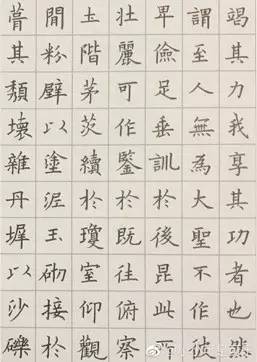 竭其力我享其功者也然
謂至人無為大聖不作彼
卑儉足垂訓於後昆此所
壯麗可作鑒於既往俯察
圡階茅茨續於瓊室仰觀
間粉壁以塗泥玉砌接於
葺其頹壞雜丹墀以沙礫